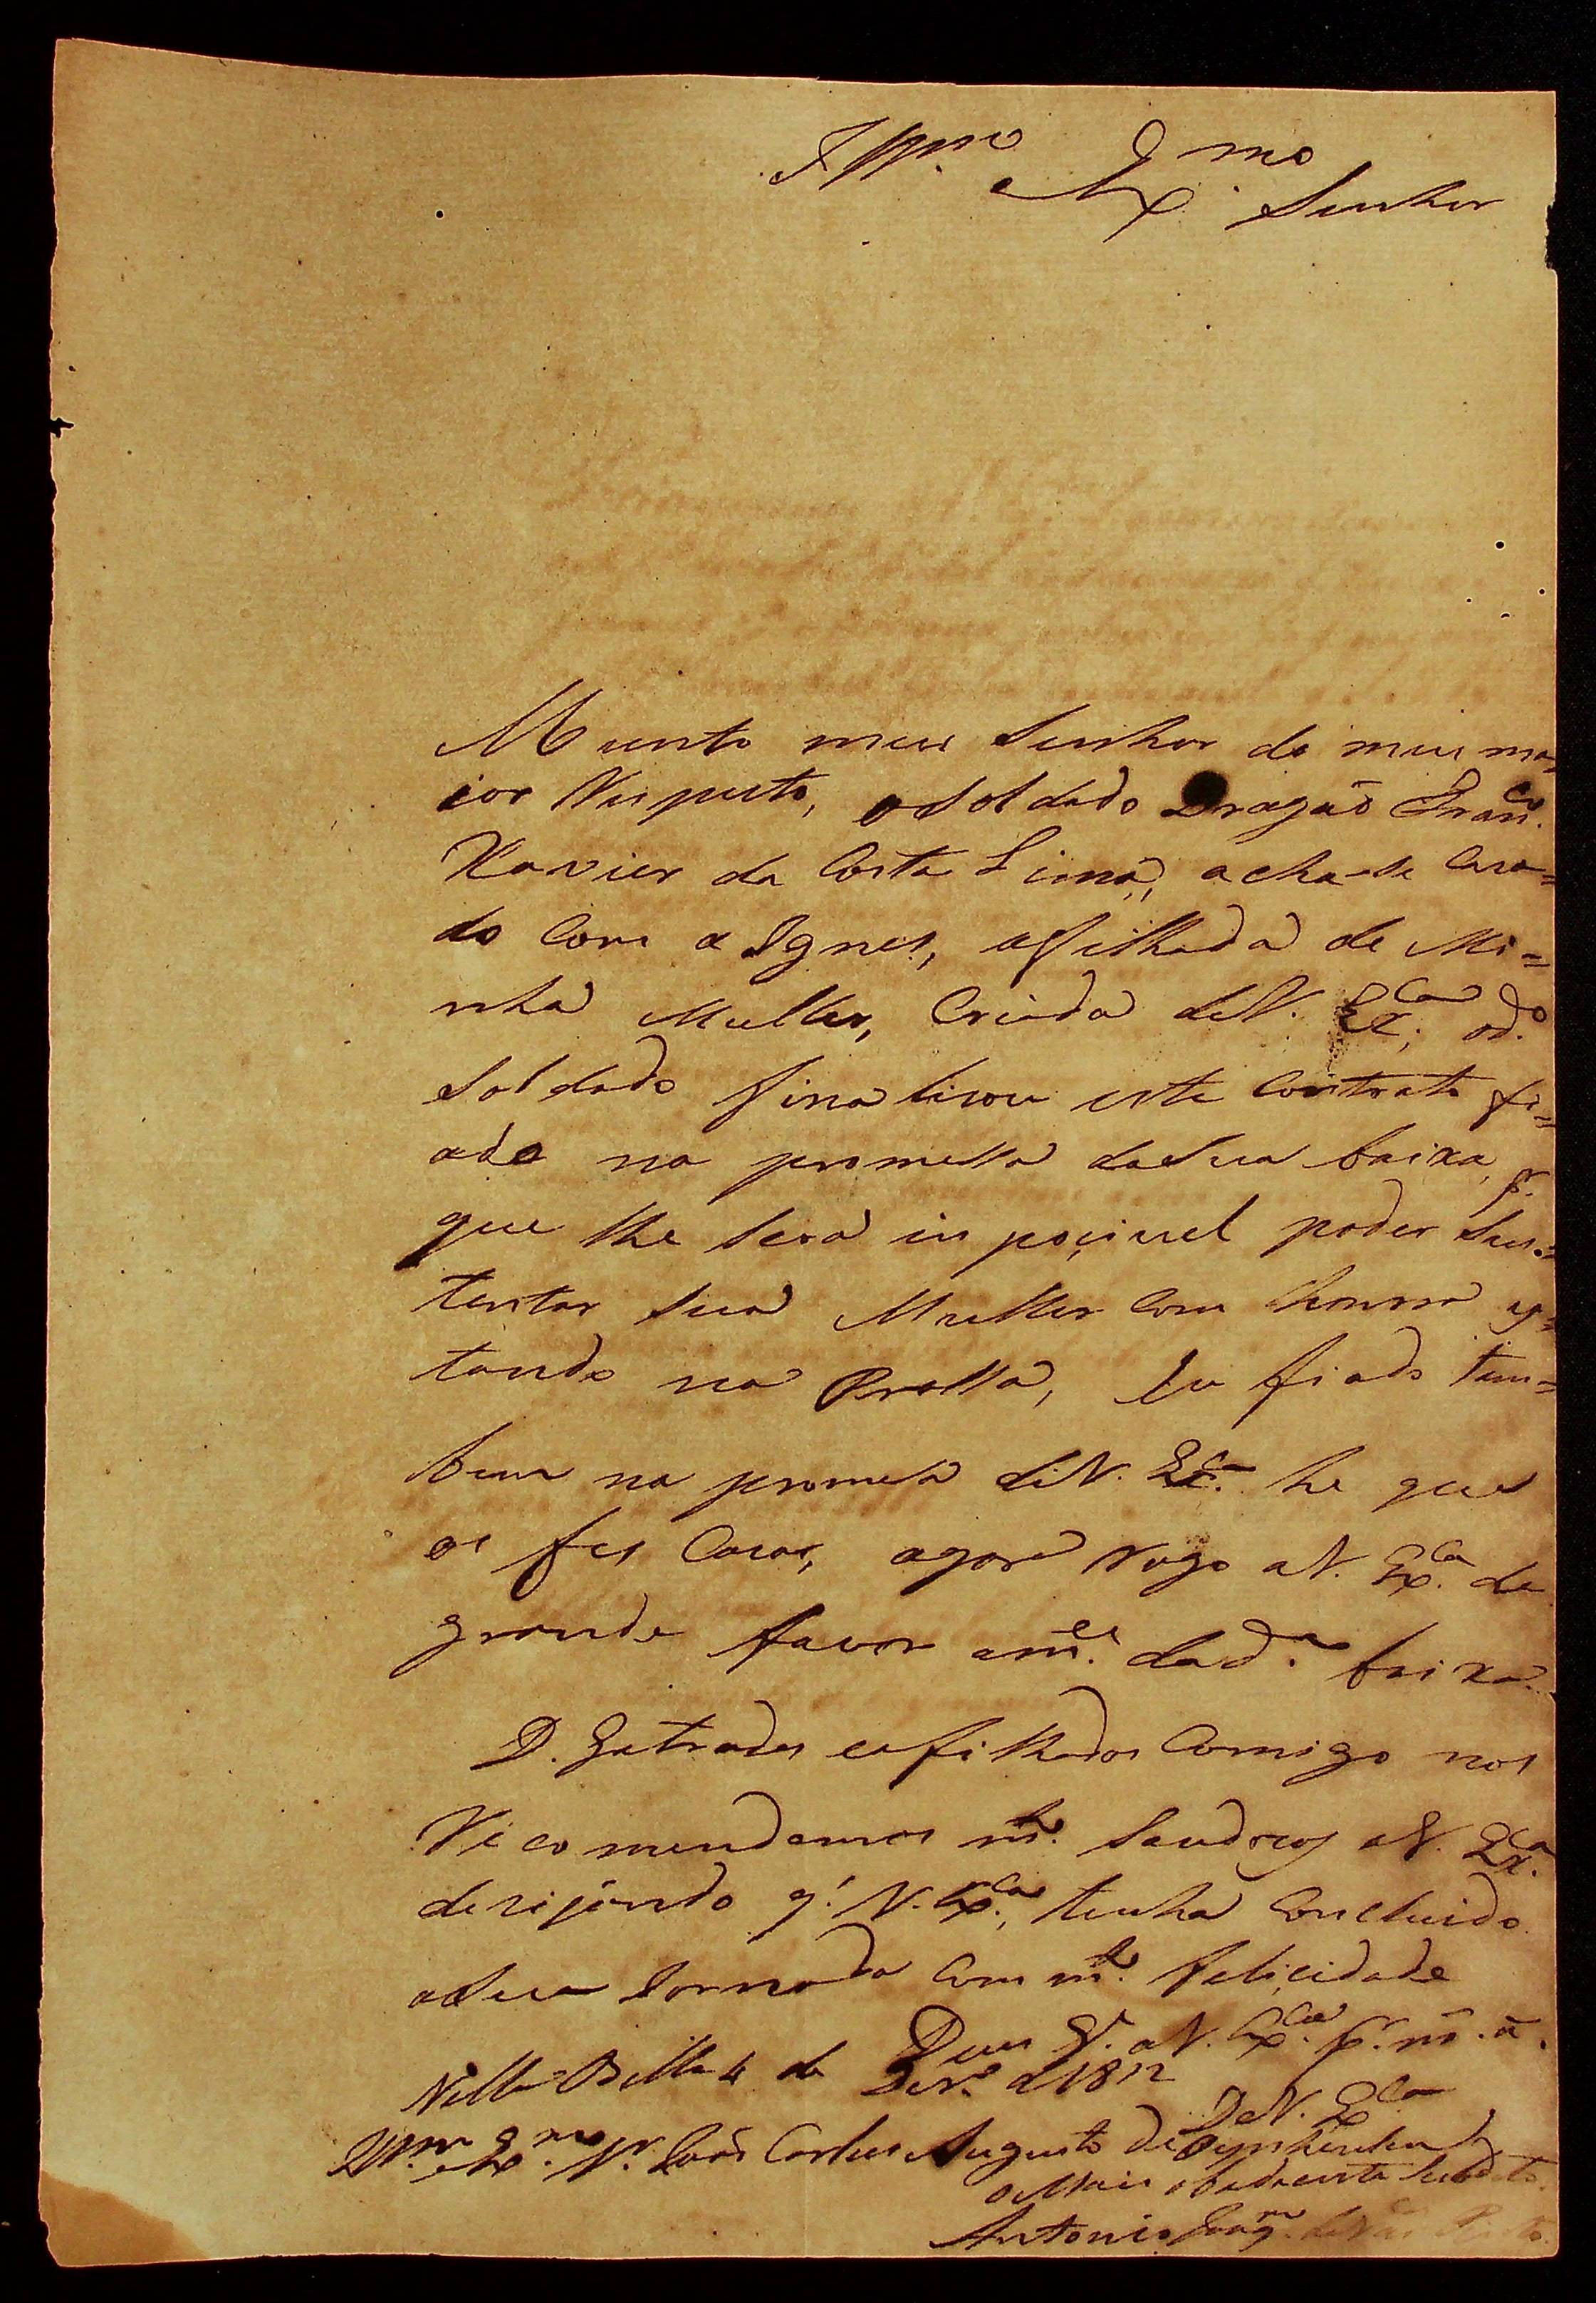 Illmo Exmo Senhor
Munto meu Senhor do meu ma
ior Respeito, o Soldado Dragaõ Franco.
Xavier da Costa Lima, acha-se Caza=
do Com a Ignes, afilhada de Mi=
nha Muller, Criada de V. Exca; o do.
Soldado finalisou este Contrato fi=
ado na promessa da Sua baixa, pr.
que lhe Será inpoçivel poder Sus=
tentar Sua Muller Com honrra es=
tando na Prassa, Eu fiado tam=
bem na promesa de V. Exca. he que
os fes Cazar, agora Rogo a V. Exca. de
grande favor a mce. da da. baixa.
D. Gertrudes e afilhados Comigo nos
Recomendamos mto. Saudozos a V. Exca.
dezijando q'. V. Exca., tenha Concluido
a Sua Jornada Com mta. felicidade
Deus Ge. a V. Exca. pr. ms. as.
Villa Bella 4 de Dezro. d 1812
De V. Exca
Illmo Exmo. Sr. Joaõ Carlos Augusto d'Oeynhausen
o Mais obediente Subdito
Antonio Joaqm.